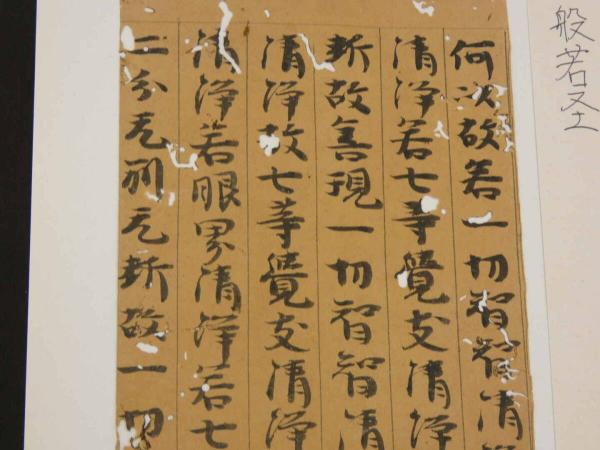 般若圣
何以故若一切智智清
清淨若七等覺支清淨
斷故善現一切智智清
清淨故七等覺支清淨
清淨若眼界清淨若七
二分无別无斷故一切